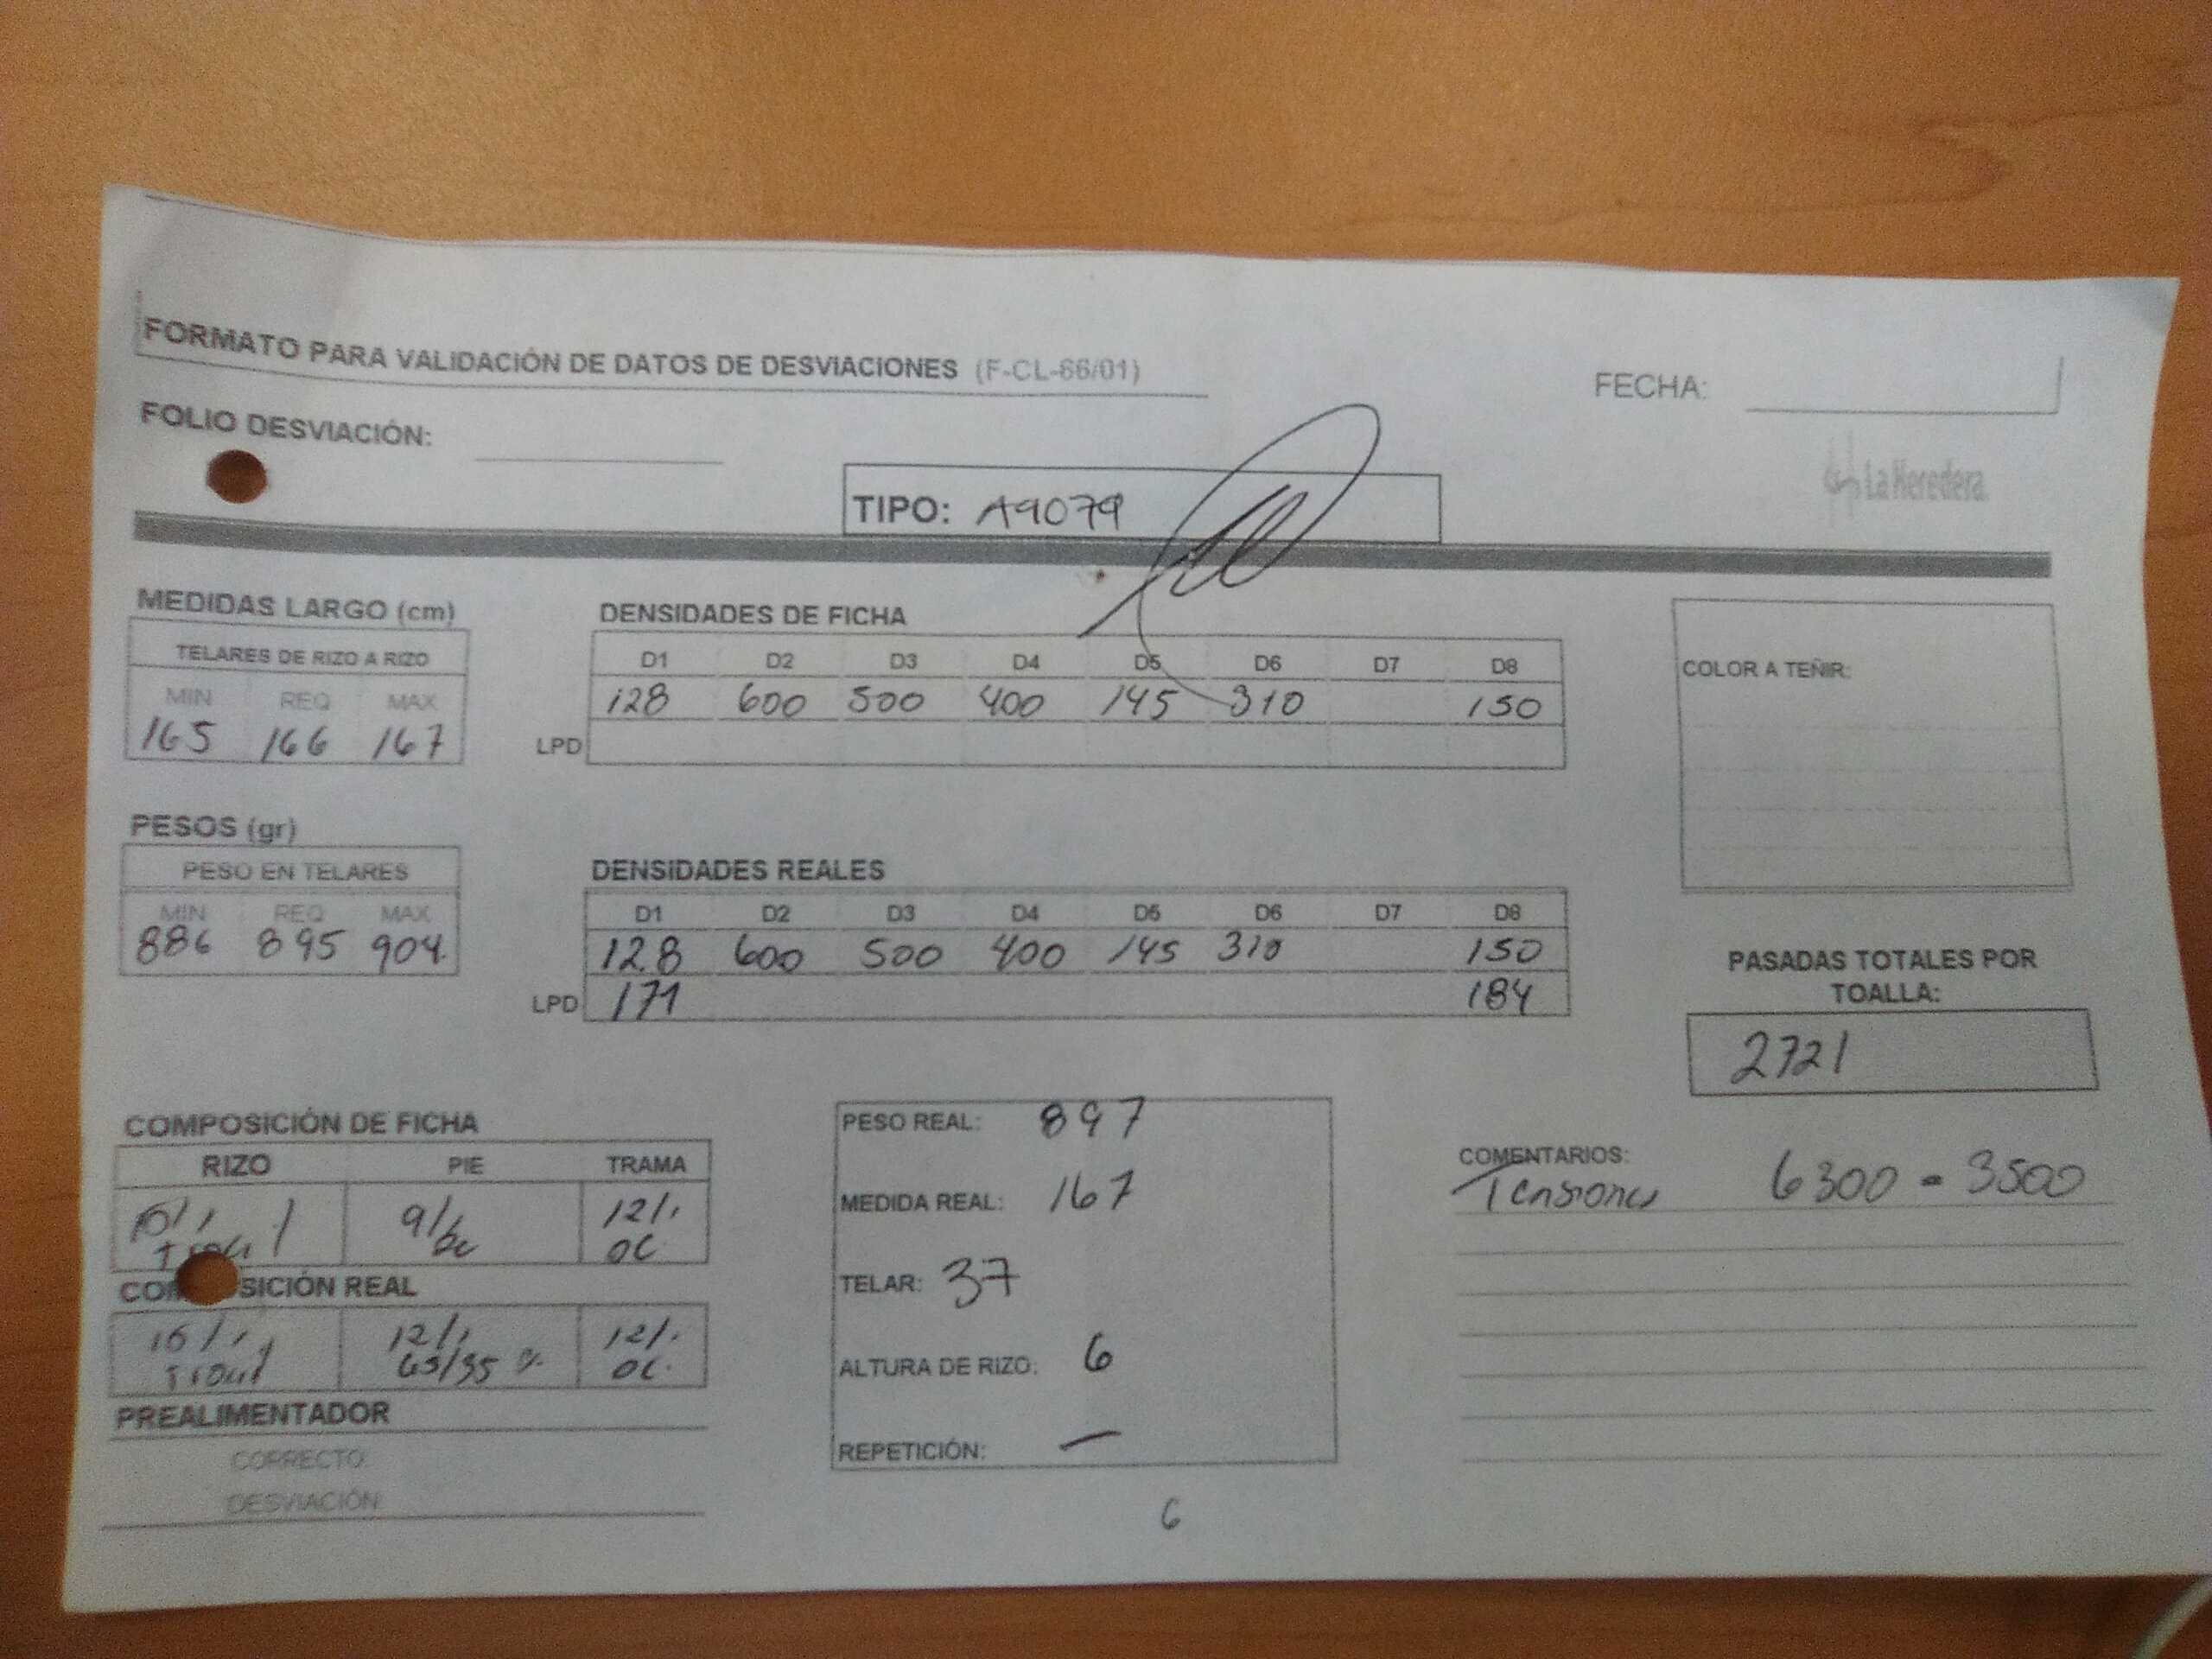 FORMATO PARA VALIDACIÓN DE DATOS DE DESVIACIONES (F-CL-66/01)
FECHA:
FOLIO DESVIACIÓN:
La Heredera
TIPO: A9079
MEDIDAS LARGO (cm)
TELARES DE RIZO A RIZO
MIN REQ MAX
165 166 167
DENSIDADES DE FICHA
D1 D2 D3 D4 D5 D6 D7 D8
128 600 500 400 145 310 150
LPD
COLOR A TEÑIR:
PESOS (gr)
PESO EN TELARES
MIN REQ MAX
886 895 904
DENSIDADES REALES
D1 D2 D3 D4 D5 D6 D7 D8
128 600 500 400 145 310 150
LPD 171 184
PASADAS TOTALES POR
TOALLA:
2721
COMPOSICIÓN DE FICHA
RIZO PIE TRAMA
9/ 12/1
OC
SICIÓN REAL
12/1 12/1
65/35 % OC.
PREALIMENTADOR
CORRECTO
DESVIACIÓN
PESO REAL: 897
MEDIDA REAL: 167
TELAR: 37
ALTURA DE RIZO: 6
REPETICIÓN: —
6
COMENTARIOS:
Tensiones 6300 - 3500